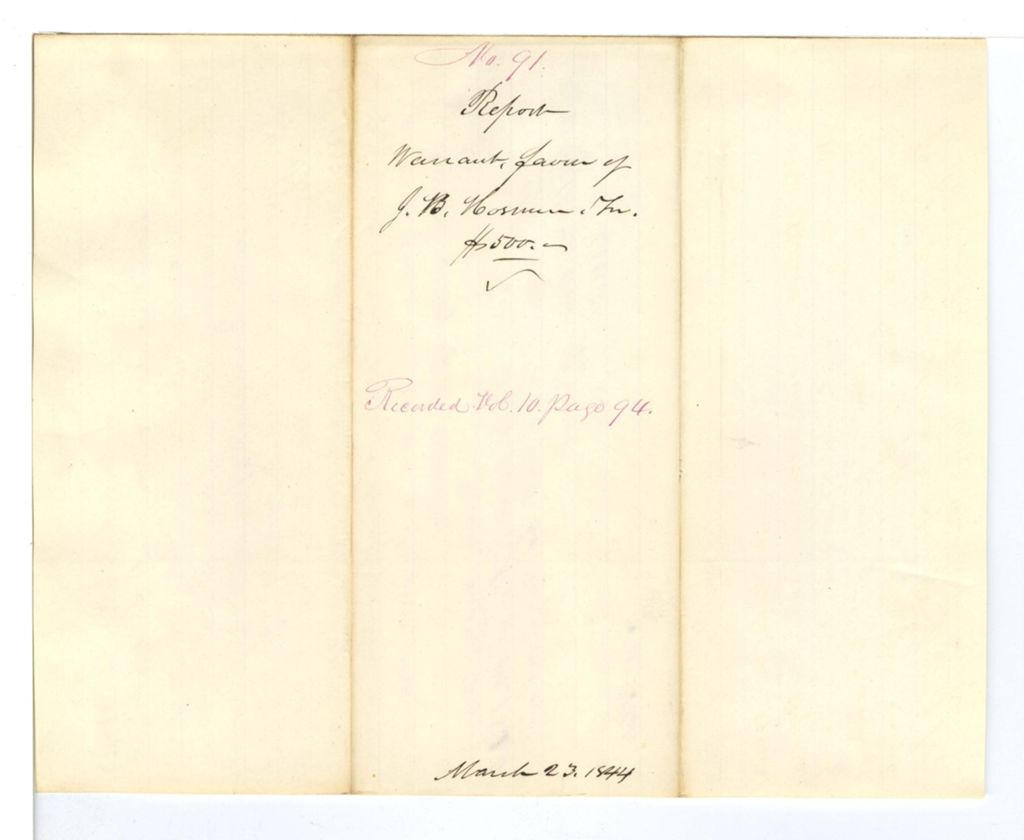 No. 91.
Report
Warrant, favour of
J. B. Hosmer, Tr.
$500.–
✓
Recorded Vol. 10. Page 94.
March 23. 1844